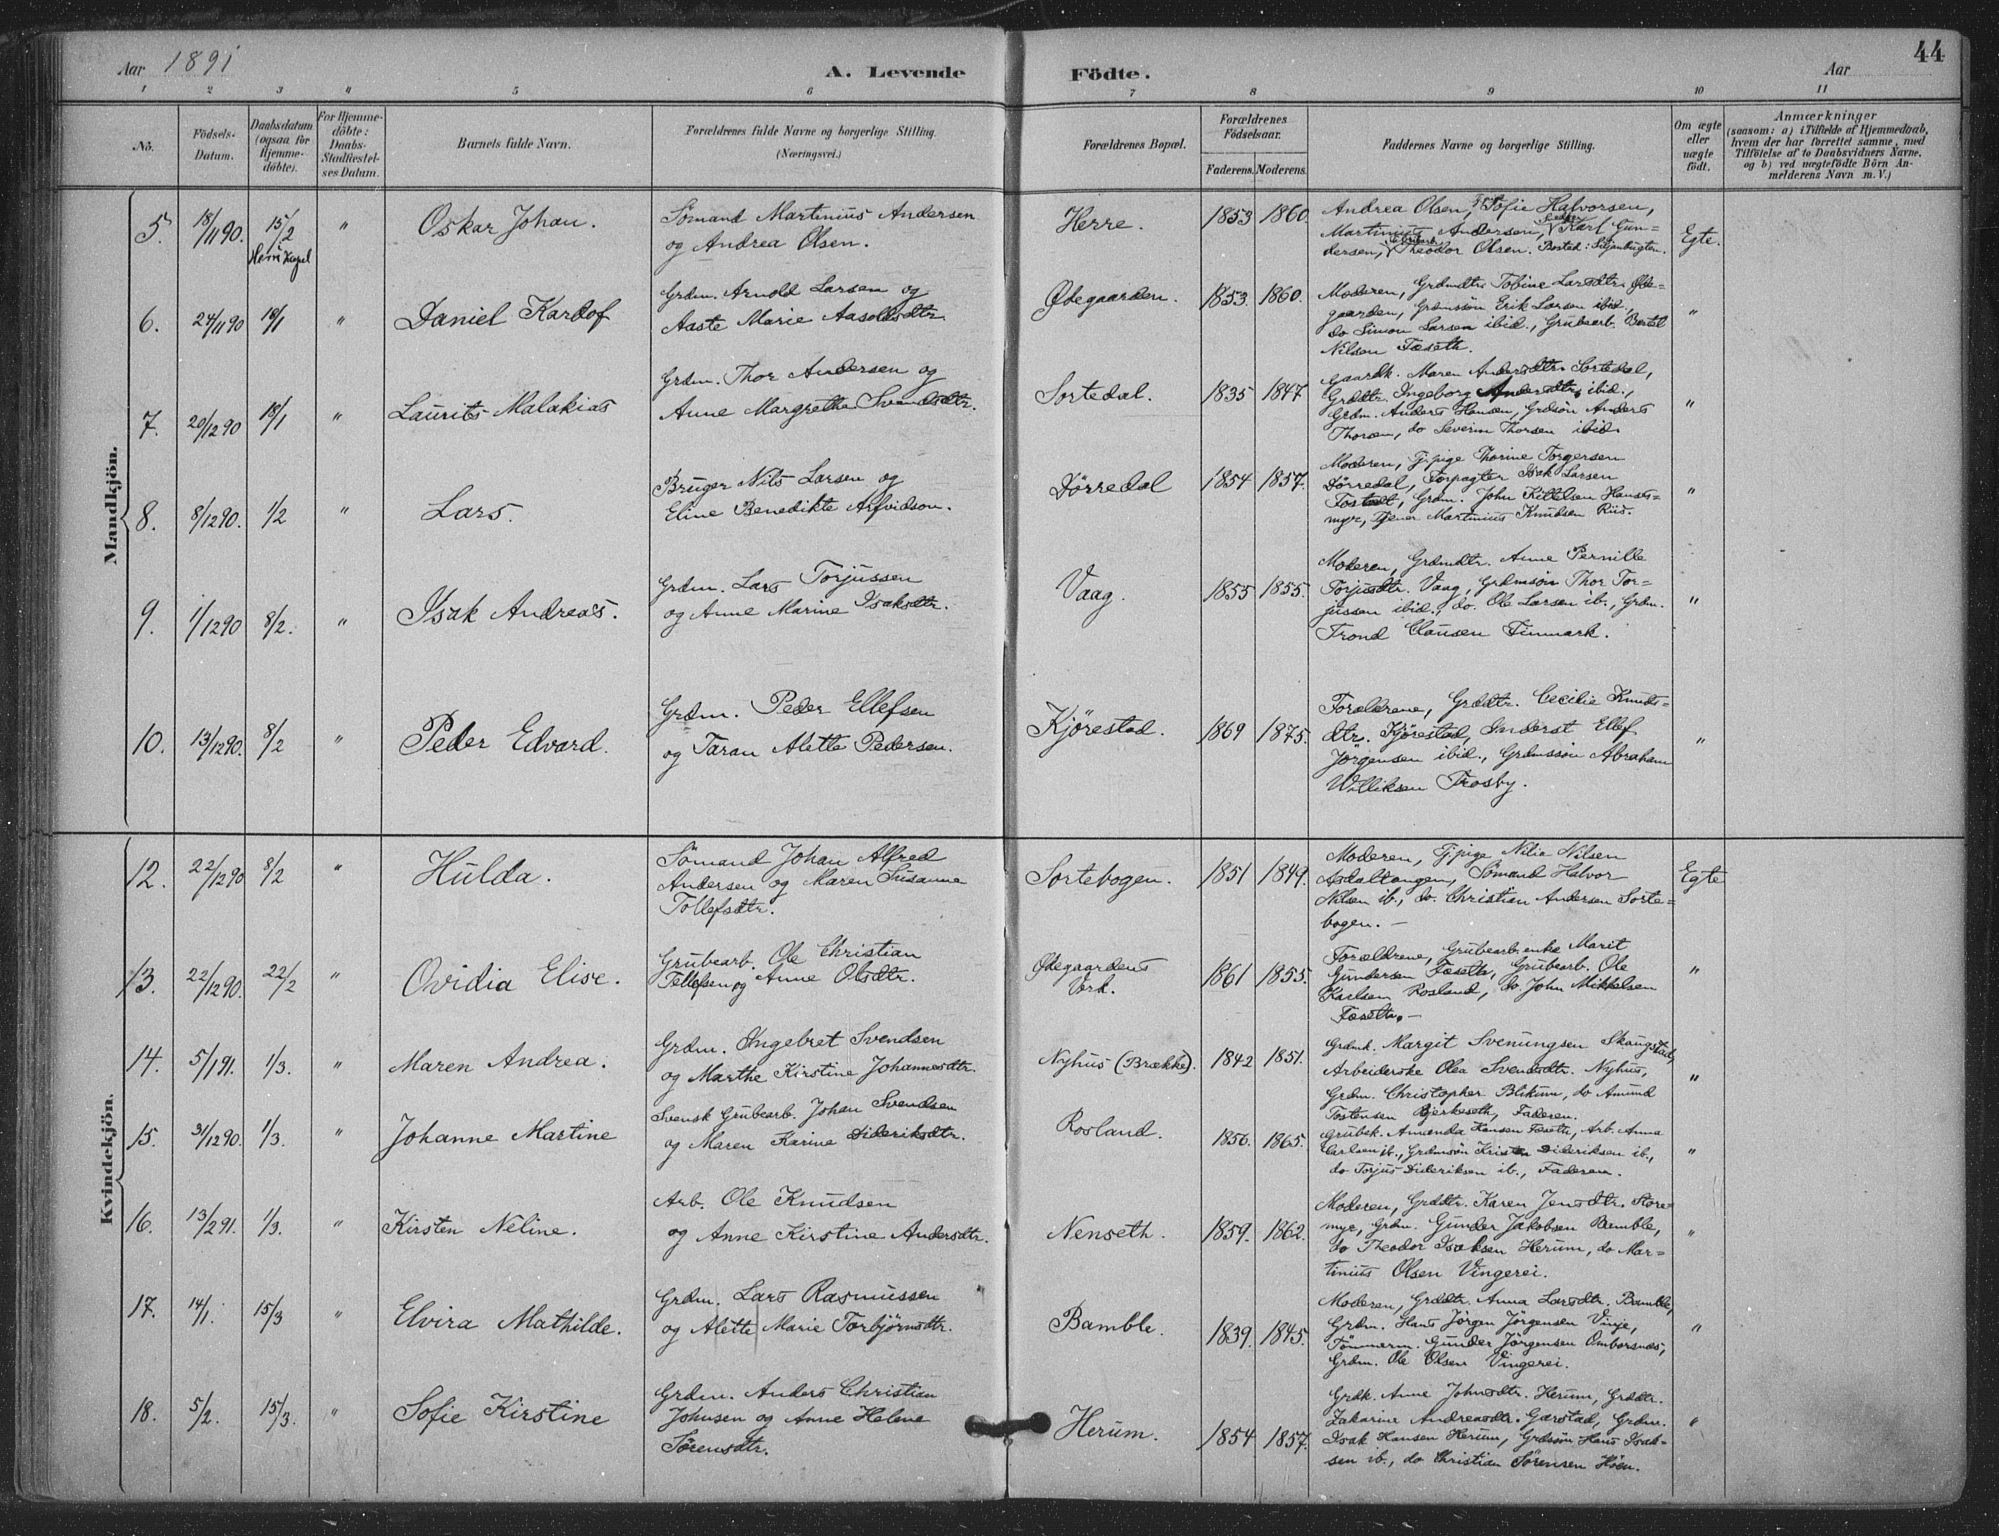 Aar 1891
A. Levende
Födte.
Aar
44
1 2 3 " 5 6 7 8 9 10 11
No.
Födsels-
Datum.
Daabsdatum
(ogsaa for
Hjemme-
döbte).
For Hjemme-
döbte:
Daabs-
Stadfæstel-
ses Datum.
Barnets fulde Navn.
Forældrenes fulde Navne og borgerlige Stilling.
(Næringsvei.)
Forældrenes Bopæl.
Forældrenes
Födselsaar.
Faderens. Moderens.
Faddernes Navne og borgerlige Stilling.
Om ægte
eller
uægte
födt.
Anmærkninger
(saasom: a) i Tilfælde af Hjemmedaab,
hvem der har forrettet samme, med
Tilföielse af to Daabsvidners Navne,
og b) ved uægtefödte Börn An-
melderens Navn m. V.)
Mandkjön.
5. 18/11 90. 15/2 " Oskar Johan.
Herre Kapel
Sømand Martinius Andersen
og Andrea Olsen.
Herre. 1853 1860.
Andrea Olsen, Sofie Halvorsen,
Martinius Andersen, Karl Gun-
dersen, Theodor Olsen. Bosted: Siljanbugten.
Egte.
6. 24/11 90 18/1 " Daniel Kardof
Grdm. Arnold Larsen og
Aaste Marie Aasoldsdtr.
Ødegaarden. 1853. 1860.
Moderen, Grdmdtr. Tobine Larsdtr. Øde-
gaarden, Grdmssön Erik Larsen ibid.,
do Simon Larsen ibid., Grubearb. Bertel
Nilsen Fæseth.
"
7. 20/12 90 18/1 " Laurits Malakias
Grdm. Thor Andersen og
Anne Margrethe Svendsdtr.
Sortedal. 1835 1847
Gaardk. Maren Andersdtr. Sortedal,
Grddtr. Ingeborg Andersdtr. ibid.,
Grdm. Anders Hansen, Grdsön Anders
Thorsen, do Severin Thorsen ibid.
"
8. 8/12 90. 1/2 " Lars.
Bruger Nils Larsen og
Eline Benedikte Arfvidson.
Dørredal 1854 1857.
Moderen, Tj.pige Thorine Torgersen
Dørredal, Forpagter Isak Larsen
Tostedt, Grdm. John Kittilsen Hansts-
myr, Tjener Martinius Knudsen Riis.
"
9. 1/12 90 8/2. " Isak Andreas.
Grdm. Lars Torjussen
og Anne Marine Isaksdtr.
Vaag. 1855 1855.
Moderen, Grdmdtr. Anne Pernille
Torjusdtr. Vaag, Grdmsön Thor Tor-
jussen ibid., do. Ole Larsen ib., Grdm.
Trond Clausen Finmark.
"
10. 13/12 90. 8/2 " Peder Edvard.
Grdm. Peder Ellefsen
og Taran Alette Pedersen.
Kjørestad. 1869 1875.
Forældrene, Grddtr. Cecilie Knuds-
dtr. Kjørestad, Inderst Ellef
Jørgensen ibid., Grdmssön Abraham
Williksen Trosby.
"
Kvindekjön.
12. 22/12 90 8/2 " Hulda.
Sømand Johan Alfred
Andersen og Maren Susanne
Tollefsdtr.
Sortebogen. 1851 1849.
Moderen, Tj.pige Nilia Nilsen
Asdaltangen, Sømand Halvor
Nilsen ib., do. Christian Andersen Sorte-
bogen. —
Egte
13. 22/12 90. 22/2 " Ovidia Elise.
Grubearb. Ole Christian
Tellefsen og Anne Olsdtr.
Ødegaardens
Verk. 1861 1855.
Forældrene, Grubearb.enke Marit
Gundersen Fæseth, Grubearb. Ole
Karlsen Rosland, do John Mikkelsen
Fæseth. —
"
14. 5/1 91. 1/3. " Maren Andrea.
Grdm. Ingebret Svendsen
og Marthe Kirstine Johannesdtr.
Nyhus (Brække). 1842 1851.
Grdmk. Margit Svenungsen Skaugstad,
Arbeiderske Olea Svendsdtr. Nyhus,
Grdm. Christopher Blikum, do Amund
Tostensen Bjerkeseth, Faderen.
"
15. 31/12 90. 1/3. " Johanne Martine
Svensk Grubearb. Johan Svendsen
og Maren Karine Dideriksdtr.
Rosland. 1856. 1865.
Grubek. Amanda Hansen Fæseth, Arb. Anna
Carlsen ib., Grdmsön Kristen Dideriksen ib.,
do. Torjus Dideriksen ib., Faderen.
"
16. 13/2 91. 1/3. " Kirsten Neline.
Arb. Ole Knudsen
og Anne Kirstine Andersdtr.
Nenseth. 1859. 1862.
Moderen, Grddtr. Karen Jensdtr. Store-
myr, Grdm. Gunder Jakobsen Bamble,
do Theodor Isaksen Herum, do Mar-
tinius Olsen Vingerei.
"
17. 14/1. 15/3 " Elvira Mathilde.
Grdm. Lars Rasmussen
og Alette Marie Torbjørnsdtr.
Bamble. 1839. 1845.
Moderen, Grddtr. Anna Larsdtr. Bamble,
Grdm. Hans Jørgen Jørgensen Vinje,
Tömmerm. Gunder Jørgensen Omborsnæs,
Grdm. Ole Olsen Vingerei.
"
18. 5/2. 15/3. " Sofie Kirstine
Grdm. Anders Christian
Johnsen og Anne Helene
Sørensdtr.
Herum. 1854 1857.
Grdk. Anne Johnsdtr. Herum, Grddtr.
Zakarine Andreasdtr. Garstad, Grdm.
Isak Hansen Herum, Grdssön Hans Isak-
sen ib., do Christian Sörensen Höen.
"